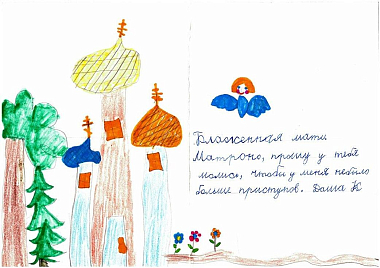 Блаженная мати
Матроно, прошу у тебя
помощи, чтобы у меня небыло
больше приступов. Даша К